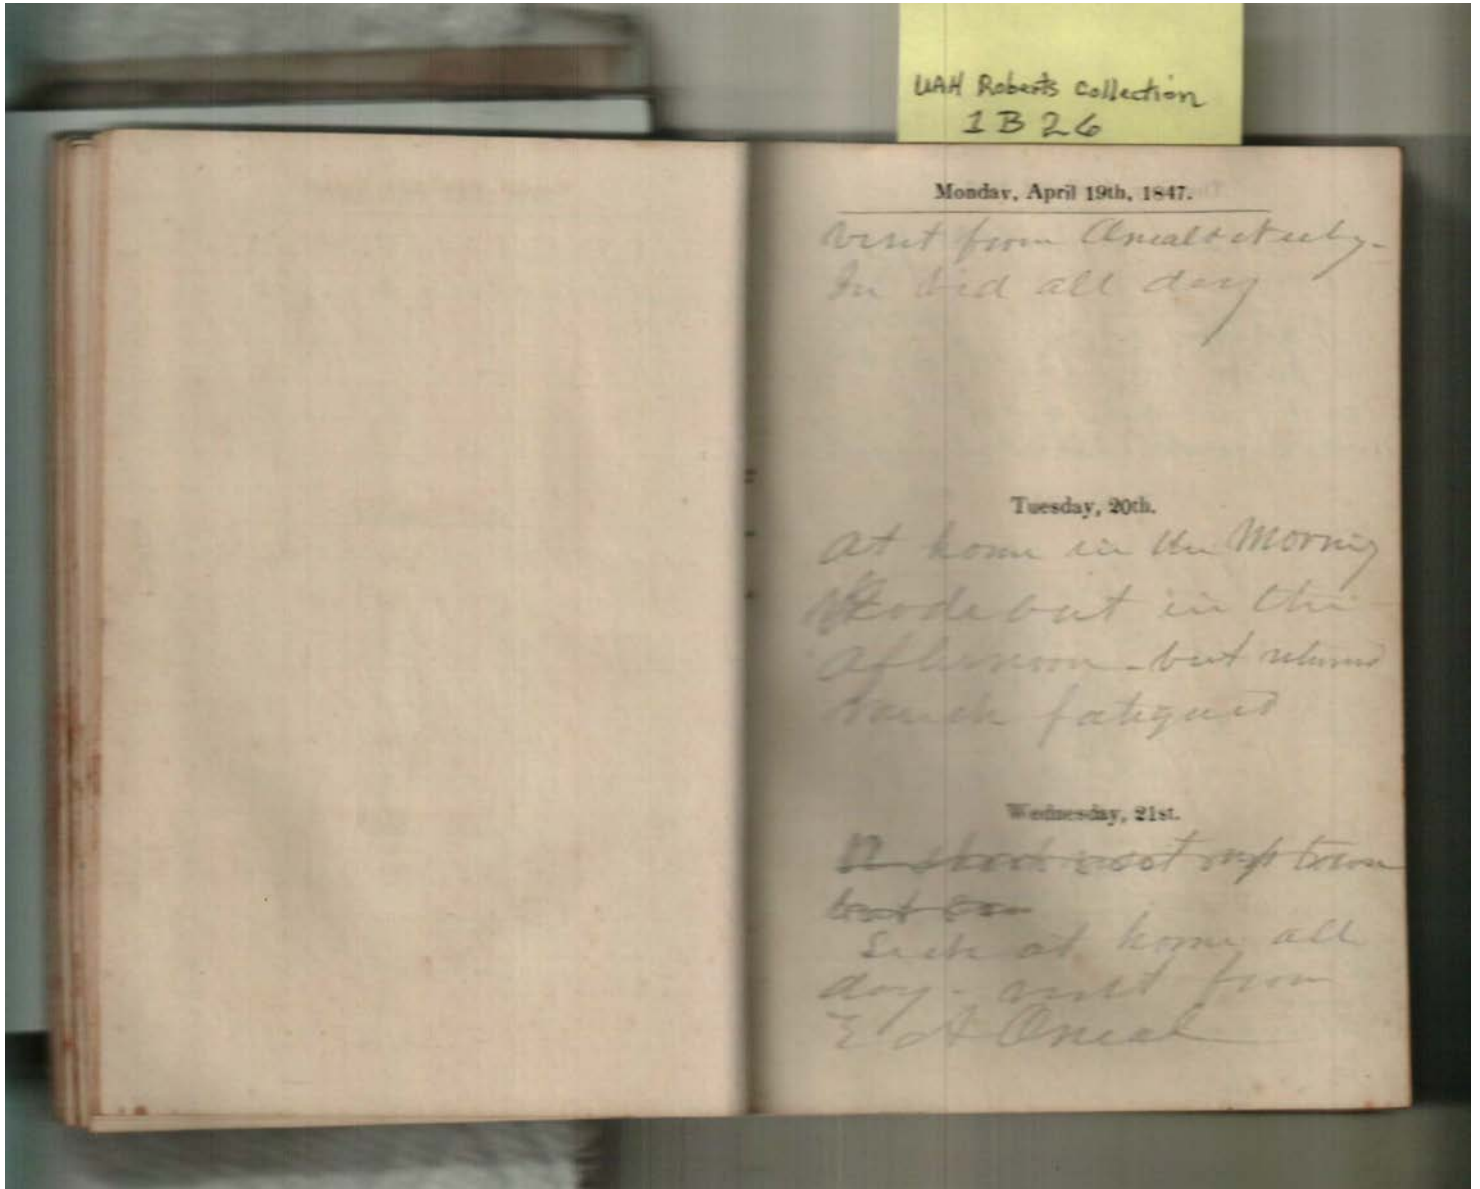 UAH Roberts Collection
1 B 26
Monday, April 19th, 1847.
visit from Oneal &
In bed all day
Tuesday, 20th.
at home in the Morning
Rode out in the
afternoon - but returned
much fatigued
Wednesday, 21st.
A short visit up town
but
Sick at home all
day - visit from
E A Oneal